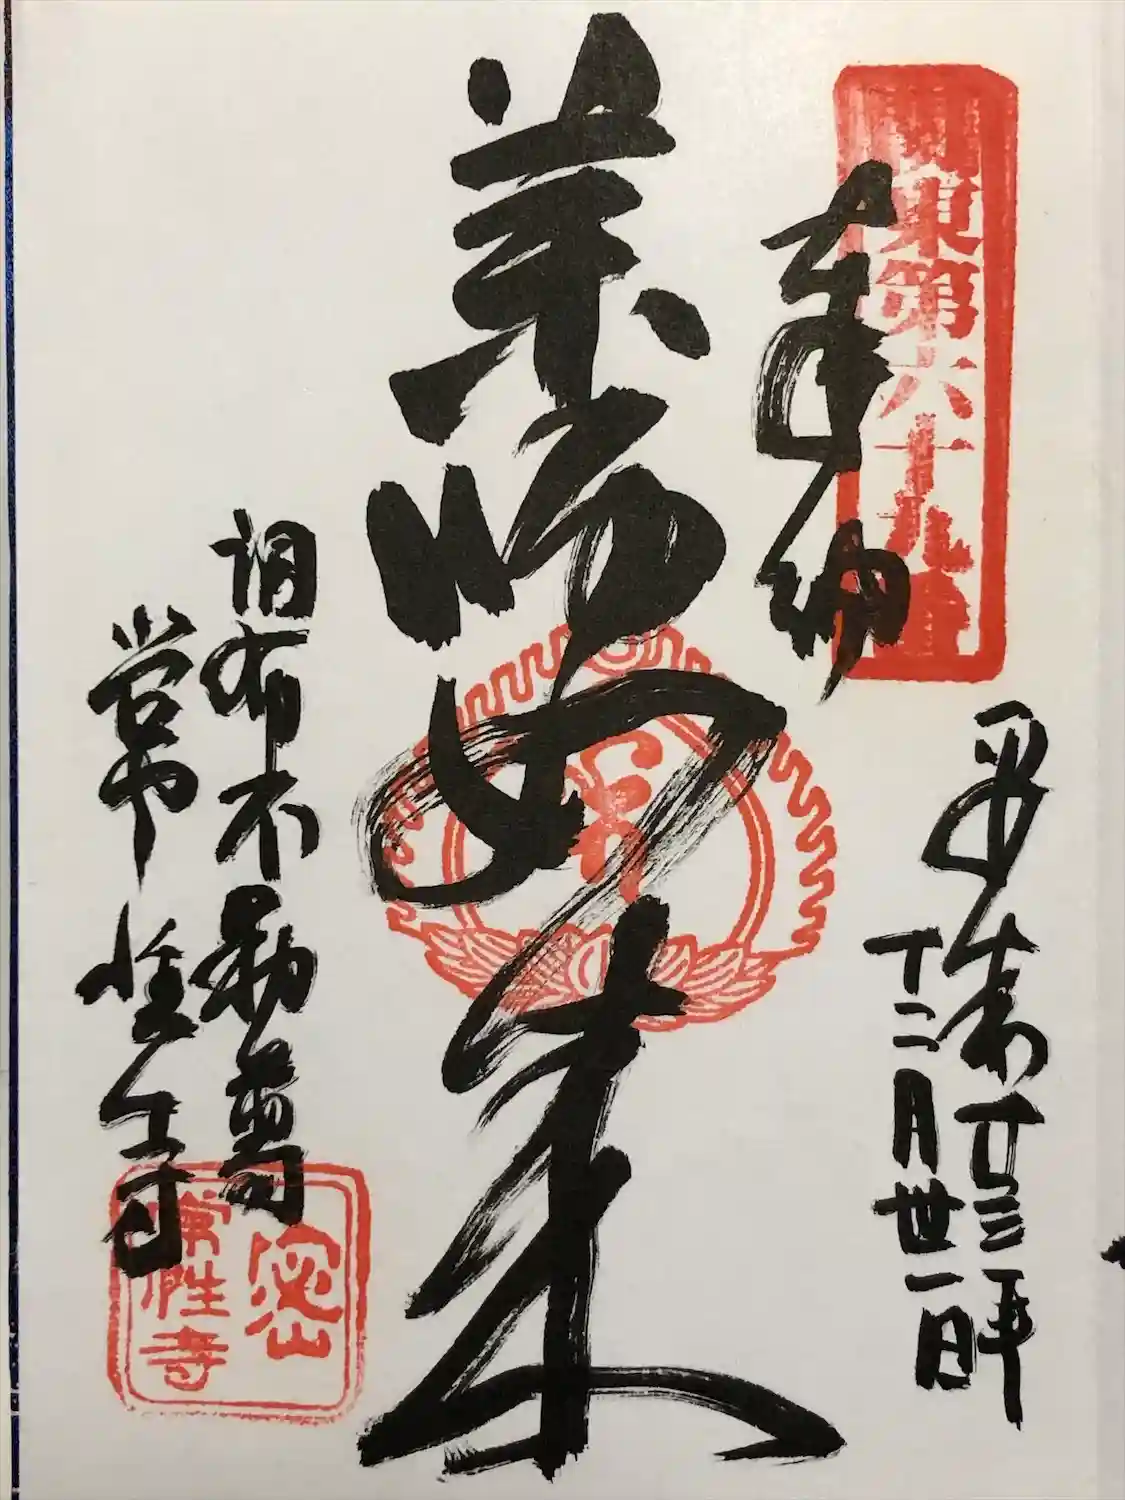 関東第六十九番
奉納
平成廿三拝
十二月丗一日
薬師如来
調布不動尊
常性寺
密山
常性寺